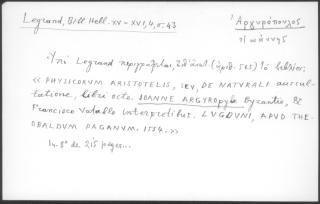 Legrand, Bibl Hell. XV-XVI, 4, σ. 43
Ἀργυρόπουλος
Ἰωάννης
Ὑπὸ Legrand περιγράφεται, (ἀριθ. 565) τὸ βιβλίον:
« PHYSICORUM ARISTOTELIS, SEV, DE NATURALI auscul-
tatione, libri octo. IOANNE ARGYROpylo Byzantio, &
Francisco Vatablo interpretibus. LVGDUNI, APVD THE-
OBALDUM PAGANUM. 1554. »
In 8° de 215 pages...